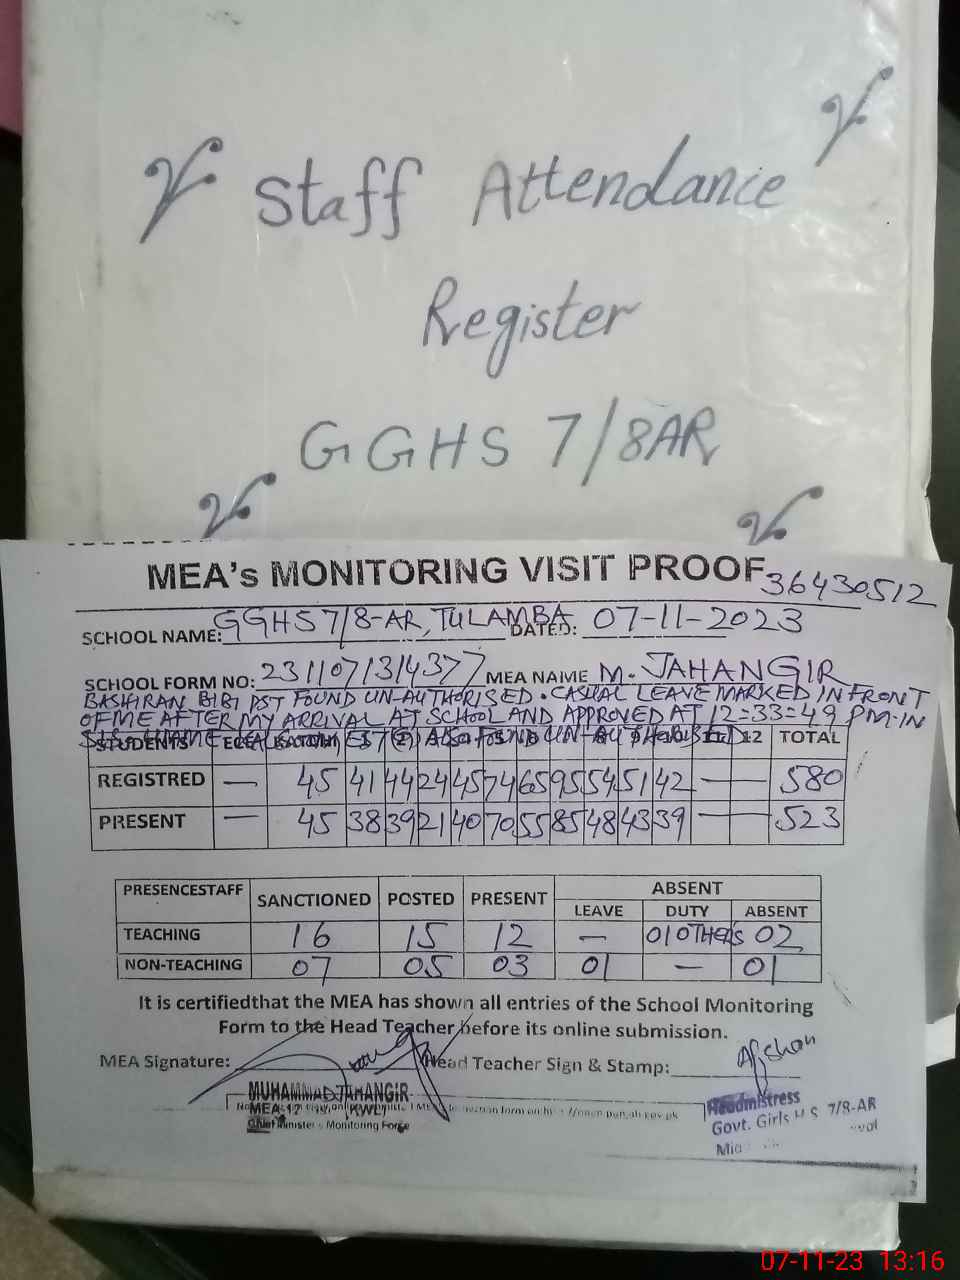 Staff Attendance
Register
GGHS 7/8AR
MEA's MONITORING VISIT PROOF
36430512
SCHOOL NAME: GGHS 7/8-AR, TULAMBA DATED: 07-11-2023
SCHOOL FORM NO: 2311071314377 MEA NAME M. JAHANGIR
BASHIRAN BIBI PST FOUND UN-AUTHORISED. CASUAL LEAVE MARKED IN FRONT
OF ME AFTER MY ARRIVAL AT SCHOOL AND APPROVED AT 12=33=49 PM. IN
ALSO FOUND UN-AUTHORISED
STUDENTS ECE 12 TOTAL
REGISTRED — 45 41 44 24 45 74 65 95 54 51 42 — 580
PRESENT — 45 38 39 21 40 70 55 85 48 43 39 — 523
PRESENCESTAFF SANCTIONED POSTED PRESENT ABSENT
LEAVE DUTY ABSENT
TEACHING 16 15 12 — 01 OTHERS 02
NON-TEACHING 07 05 03 01 — 01
It is certifiedthat the MEA has shown all entries of the School Monitoring
Form to the Head Teacher before its online submission.
MEA Signature: Head Teacher Sign & Stamp: Afshan
MUHAMMAD JAHANGIR
MEA-17 KWL
Chief Minister's Monitoring Force
Headmistress
Govt. Girls H S 7/8-AR
07-11-23 13:16